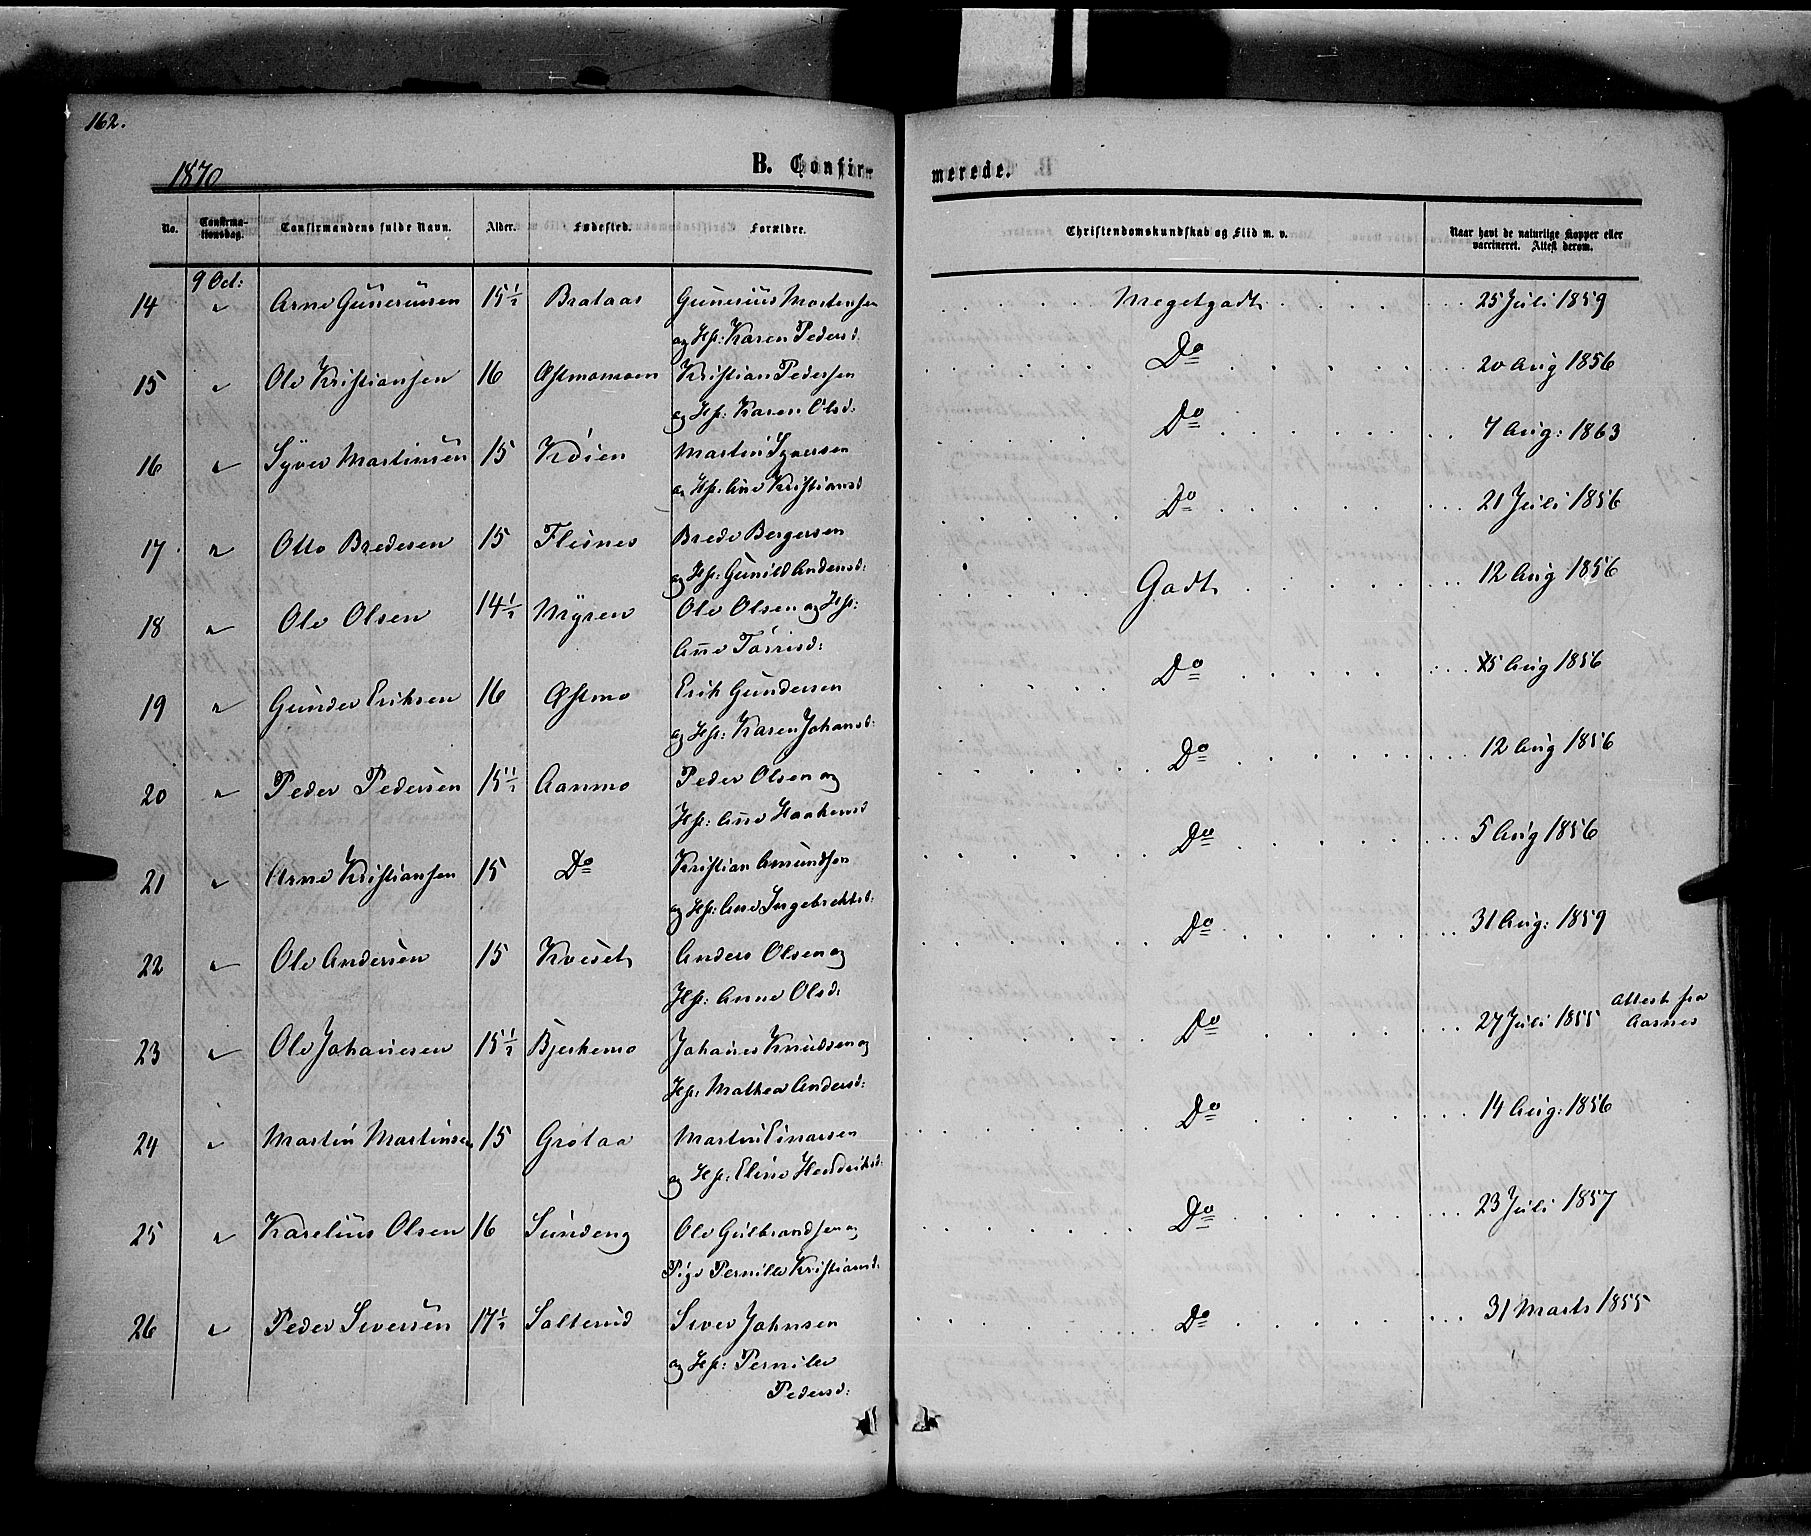 162.
1870
B. Confirmerede.
No. Confirmationsdag. Confirmandens fulde Navn. Alder. Fødested. Forældre. Christendomskundskab og Flid m. v. Naar havt de naturlige Kopper eller vaccineret. Attest derom.
9 Oct:
14 " Arne Gunerusen 15½ Brataas Gunerius Mortensen . . . . Megetgodt . . . . 25 Juli 1859
og Hst: Karen Pedersd.
15 " Ole Kristiansen 16 Astmomoen Kristian Pedersen Do 20 Aug 1856
og Hst: Karen Olsd:
16 " Syver Martinsen 15 Köien Martin Syversen Do 7 Aug: 1863
og Hst: Ane Kristiansd
17 " Otto Bredesen 15 Flisnes Brede Bergersen Do 21 Juli 1856
og Hst: Gunild Andersd:
18 " Ole Olsen 14½ Myren Ole Olsen og Hst: Godt 12 Aug 1856
Ane Torrisd:
19 " Gunder Eriksen 16 Astmo Erik Gundersen Do 15 Aug 1856
og Hst: Karen Johansd:
20 " Peder Pedersen 15½ Aanmo Peder Olsen og Do 12 Aug 1856
Hst: Ane Haakensd
21 " Arne Kristiansen 15 Do Kristian Amundsen Do 5 Aug 1856
og Hst: Ane Ingebrektsd:
22 " Ole Andersen 15 Kveset Anders Olsen og Do 31 Aug: 1859
Hst: Anne Olsd:
23 " Ole Johanesen 15½ Bjerkemo Johanes Knudsen og Do 27 Juli 1855 Attest fra Aasnes
Hst: Mathea Andersd:
24 " Martin Martinsen 15 Grötaa Martin Einarsen Do 14 Aug: 1856
og Hst: Eline Hendriksd:
25 " Karelius Olsen 16 Sundeng Ole Gulbrandsen og Do 23 Juli 1857
Pige Pernille Kristiansd:
26 " Peder Siversen 17½ Salterud Siver Johnsen Do 31 Marts 1855
og Hst: Pernille
Pedersd: